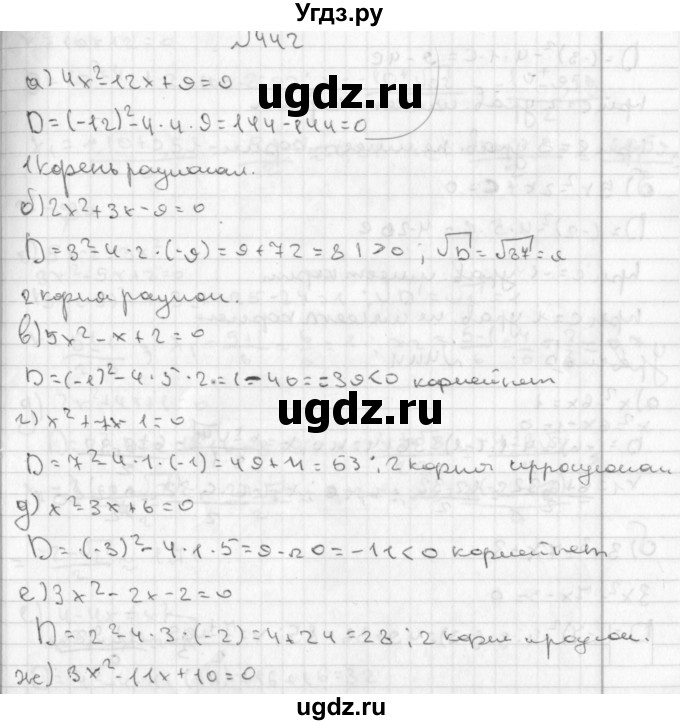 Угдз.ру
№442
а) 4x²-12x+9=0
D=(-12)²-4·4·9=144-144=0
1 корень рационал.
б) 2x²+3x-9=0
D=3²-4·2·(-9)=9+72=81>0; √D=√81=9
2 корня рацион.
в) 5x²-x+2=0
D=(-1)²-4·5·2=1-40=-39<0 корней нет
г) x²+7x-1=0
D=7²-4·1·(-1)=49+4=53; 2 корня иррационал
д) x²-3x+6=0
D=(-3)²-4·1·5=9-20=-11<0 корней нет
е) 3x²-2x-2=0
D=2²-4·3·(-2)=4+24=28; 2 корня иррацион.
ж) 3x²-11x+10=0
ugdz.ru
ugdz.ru
ugdz.ru
ugdz.ru